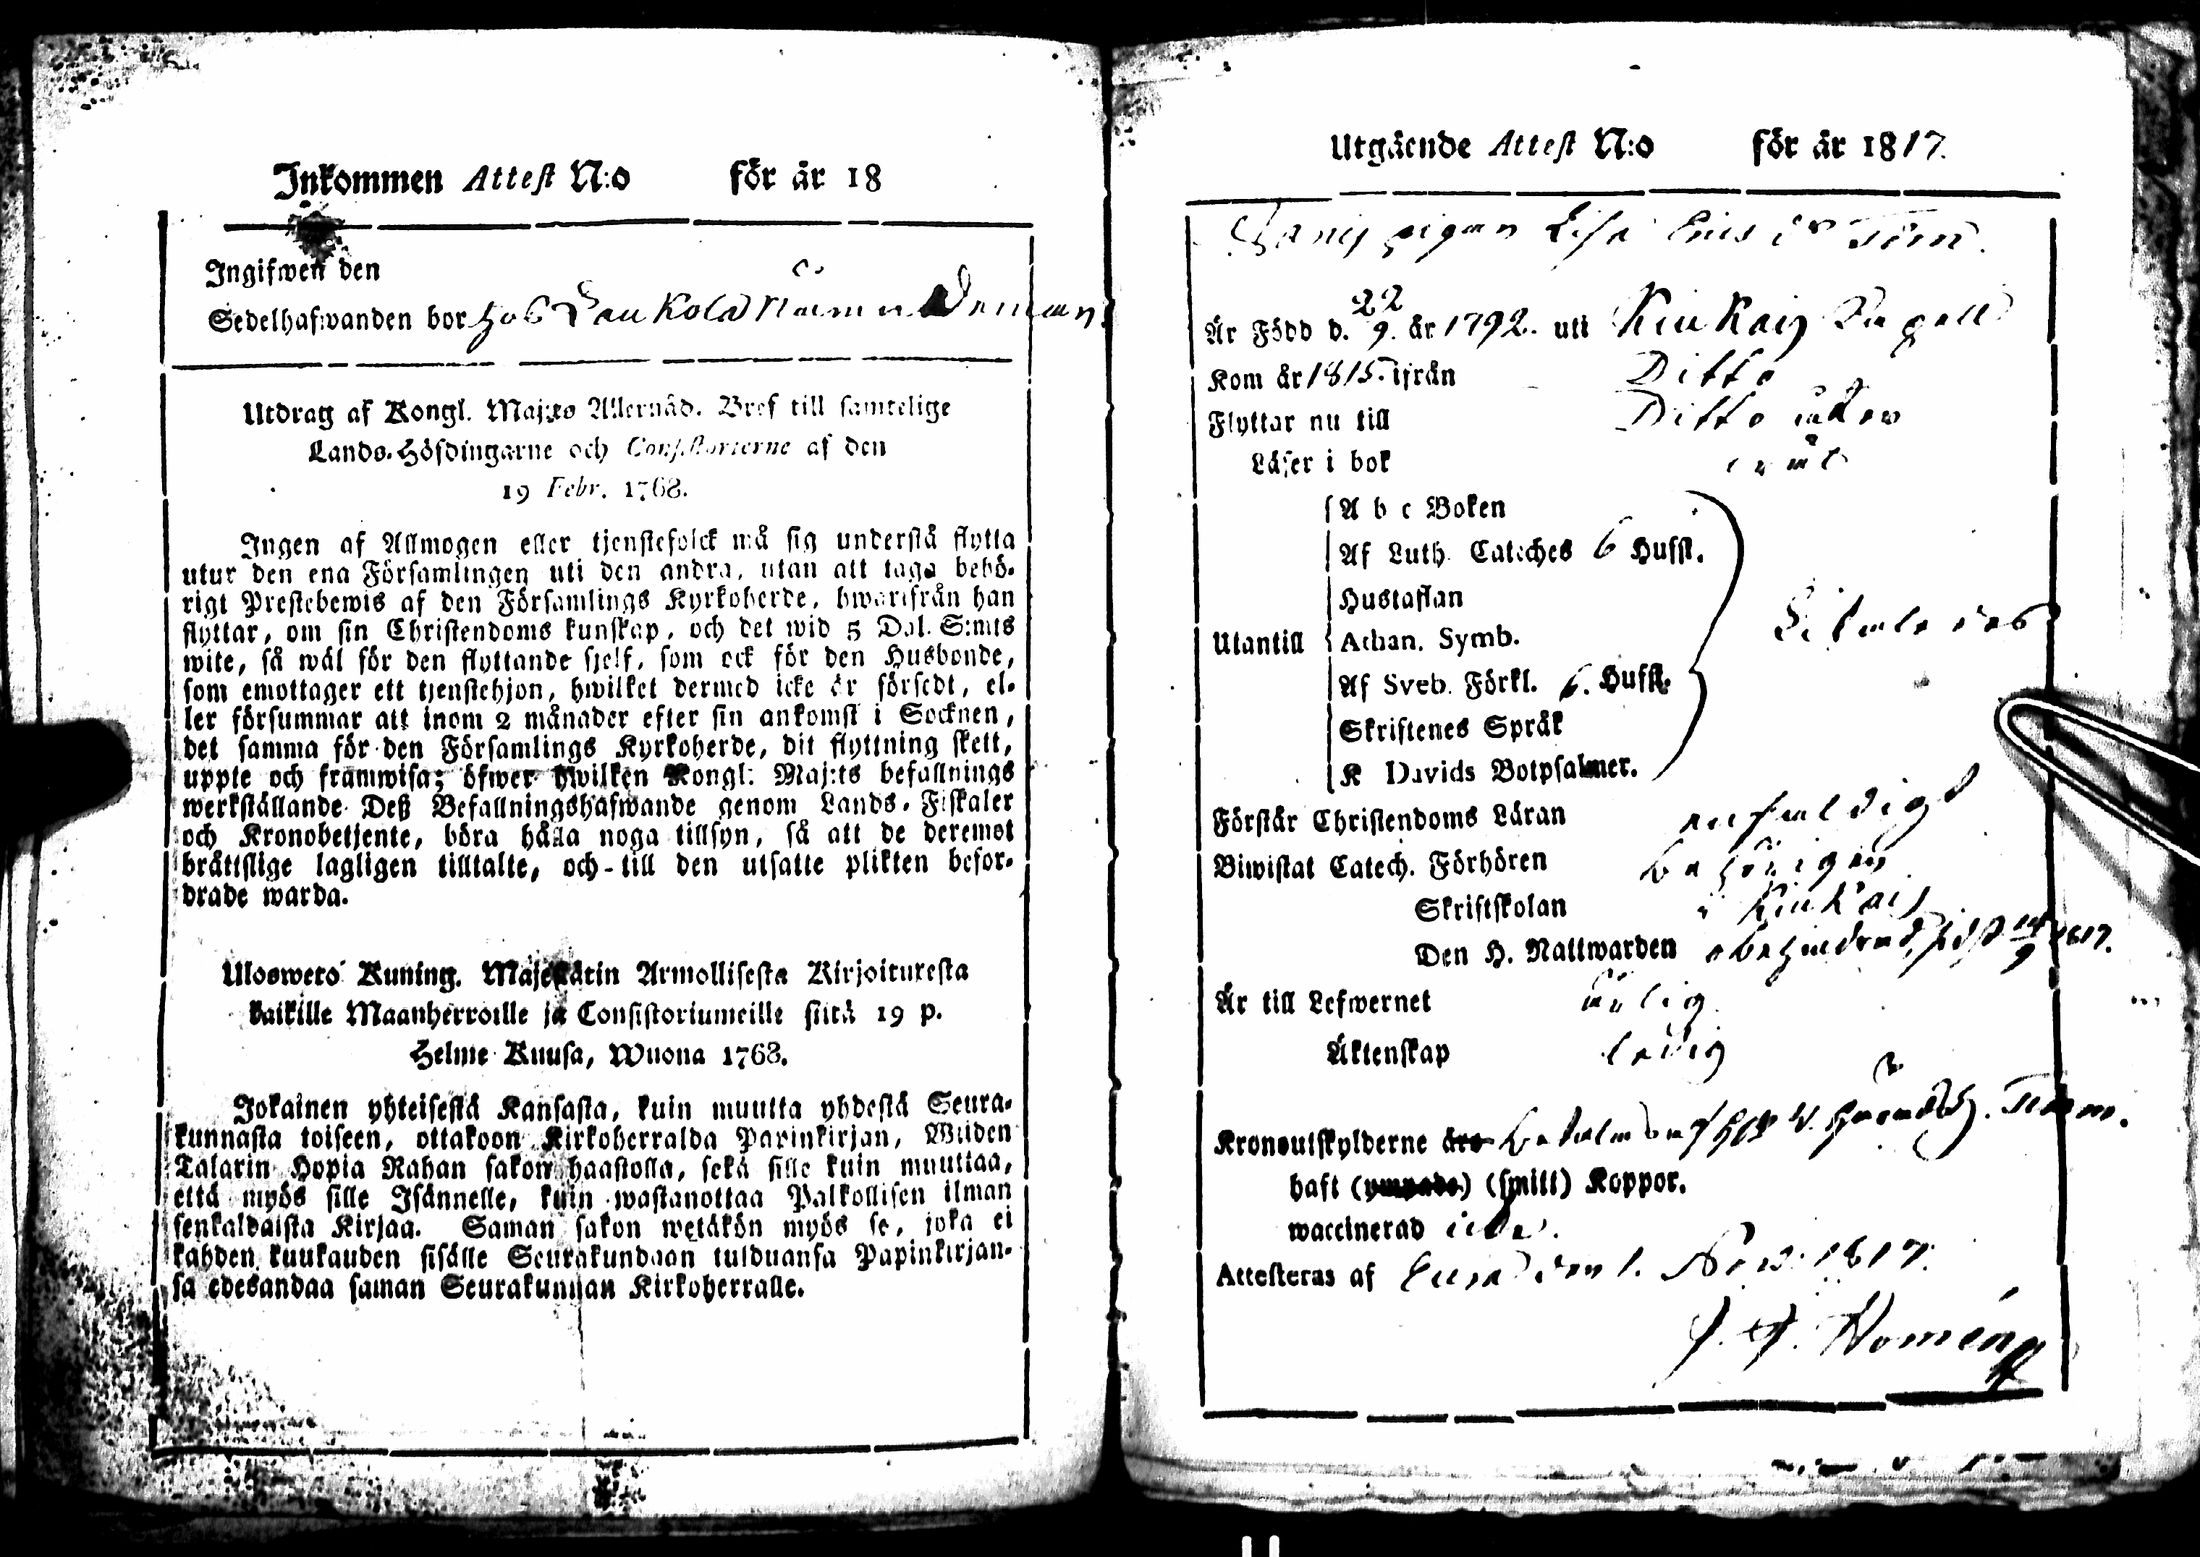 Inkommen Attest N:o för år 18
Ingifwen den
Sedelhafwanden bor hos
Utdrag af Kongl. Maj:ts Allernåd. Bref till samtelige
Lands-Höfdingarne och Consistorierne af den
19 Febr. 1768.
Ingen af Allmogen eller tjenstefolck må sig understå flytta
utur den ena Församlingen uti den andra, utan att taga behö-
rigt Prestebewis af den Församlings Kyrkoherde, hwarifrån han
flyttar, om sin Christendoms kunskap, och det wid 5 Dal. S:mts
wite, så wäl för den flyttande sjelf, som ock för den Husbonde,
som emottager ett tjenstehjon, hwilket dermed icke är försedt, el-
ler försummar att inom 2 månader efter sin ankomst i Socknen,
det samma för den Församlings Kyrkoherde, dit flyttning skett,
uppte och framwisa; öfwer hwilken Kongl. Maj:ts befallnings
werkställande Deß Befallningshafwande genom Lands-Fiskaler
och Kronobetjente, böra hålla noga tillsyn, så att de deremot
bråttslige lagligen tilltalte, och till den utsatte plikten befor-
drade warda.
Uloswero Kuning. Majestätin Armollisesta Kirjoituxesta
kaikille Maanherroille ja Consistoriumeille siitä 19 p.
Helme Kuusa, Wuona 1768.
Jokainen yhteisestä Kansasta, kuin muutta yhdestä Seura-
kunnasta toiseen, ottakoon Kirkoherralda Papinkirjan, Wiiden
Talarin Hopia Rahan sakon haastolla, sekä sille kuin muuttaa,
että myös sille Isännelle, kuin wastanottaa Palkollisen ilman
senkaldaista Kirjaa. Saman sakon wetäkön myös se, joka ei
kahden kuukauden sisälle Seurakundaan tulduansa Papinkirjan-
sa edesandaa saman Seurakunnan Kirkoherralle.
Utgående Attest N:o för år 1817.
pigan Lisa
Är Född d. 22 9. år 1792. uti Kiukais Capell
Kom år 1815. ifrån Ditto
Flyttar nu till Ditto åter
Läser i bok
A b c Boken
Af Luth. Cateches 6 Hufst.
Hustaflan
Utantill Athan. Symb.
Af Sveb. Förkl. 6. Hufst.
Skriftenes Språk
K Davids Botpsalmer.
Förstår Christendoms Läran enfaldigt
Biwistat Catech. Förhören behörigen
Skriftskolan i Kiukais
Den H. Nattwarden obehindrad, sidst 14/9 1817.
Är till Lefwernet ärlig
Äktenskap ledig
Kronoutskylderne äro betalm
haft (ympade) (smitt) Koppor.
waccinerad icke.
Attesteras af Eura den 1. Nov. 1817.